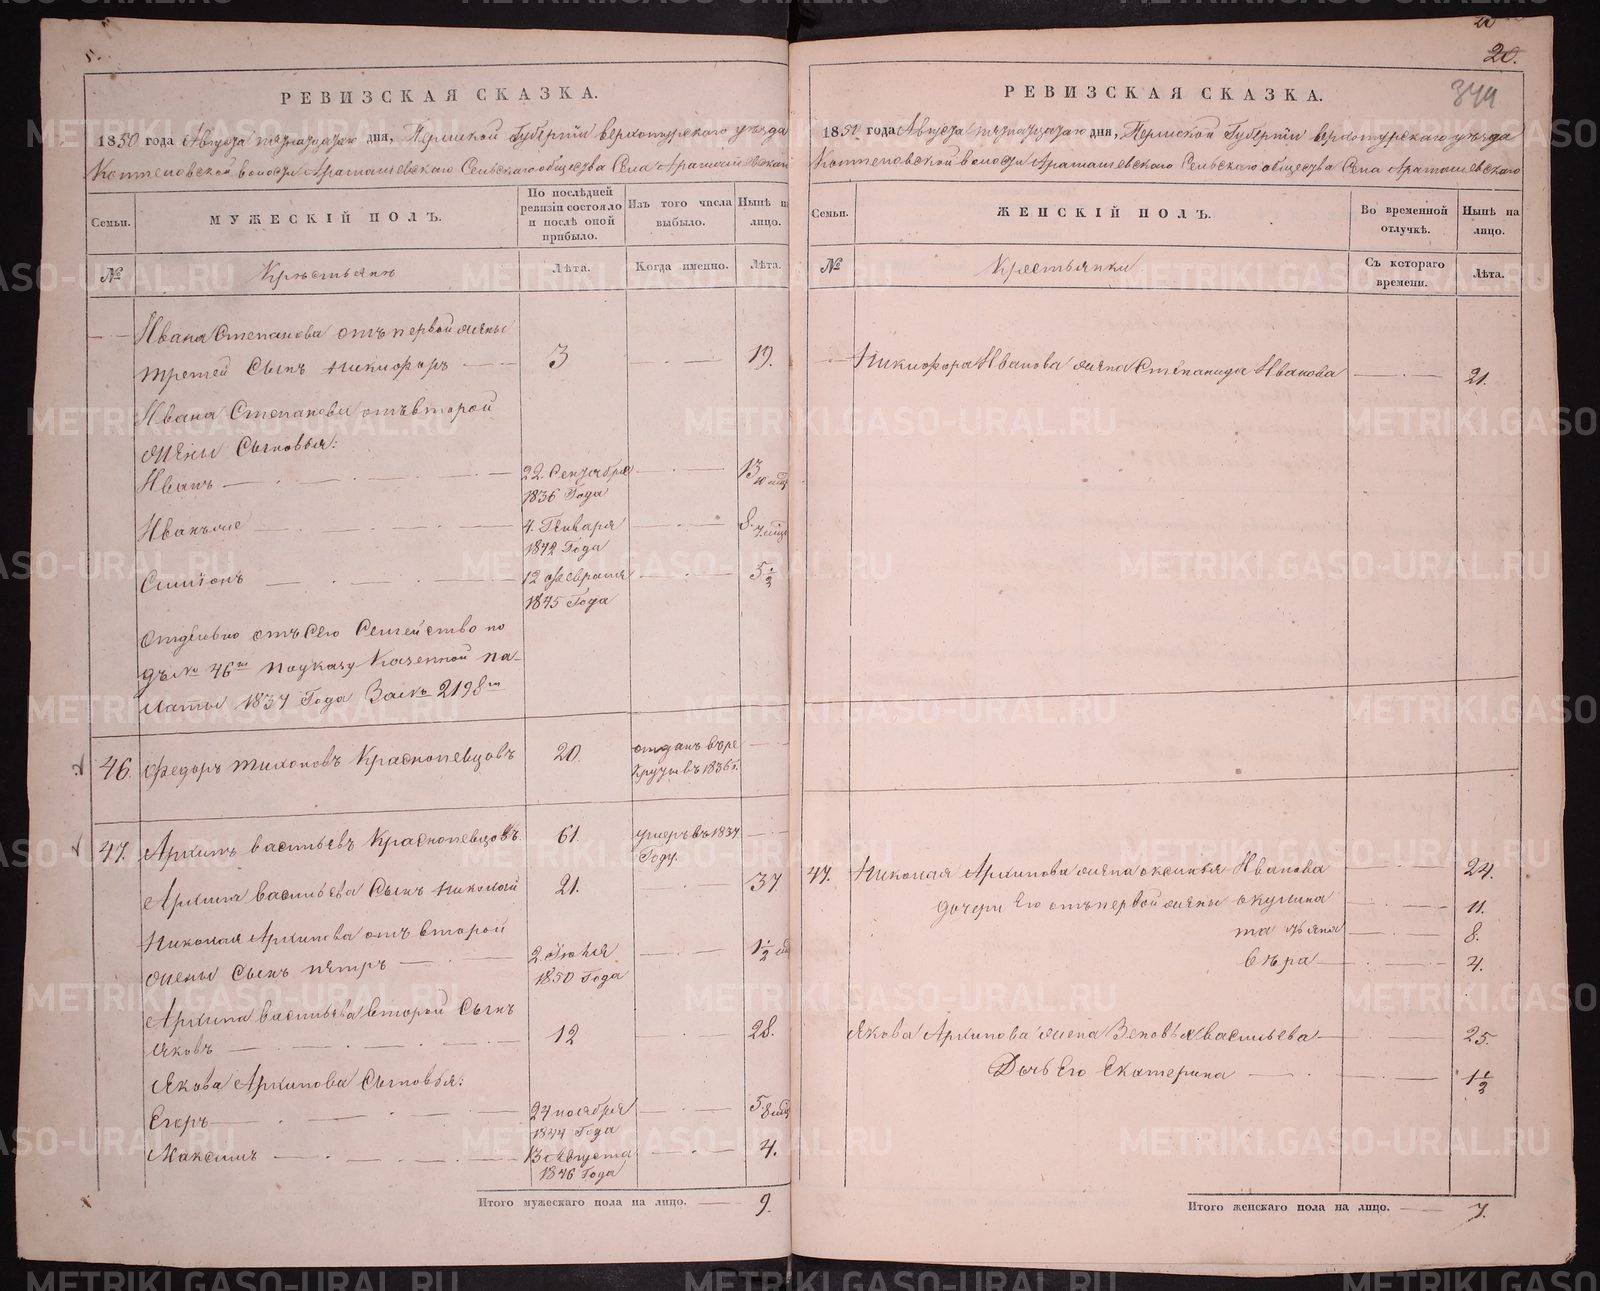 5.
РЕВИЗСКАЯ СКАЗКА.
1850 года Августа пятнадцатаго дня, Пермской Губернии верхотурскаго уѣзда
Коптеловской волости Арамашевскаго Сельскаго общества Села Арамашевскаго
Семьи.
МУЖЕСКІЙ ПОЛЪ.
По послѣдней ревизіи состояло и послѣ оной прибыло.
Изъ того числа выбыло.
Нынѣ на лицо.
№
Крестьянъ
Лѣта.
Когда именно.
Лѣта.
Ивана Степанова отъ первой жены
третей Сынъ Никифоръ 3 19.
Ивана Степанова отъ второй
жены Сыновья:
Иванъ 22 Сентября 1836 Года 13 10 мѣц
Иванъ же 4. Генваря 1842 Года 8. 7 мѣц
Симіонъ 12 февраля 1845 Года 5 1/2
Отдѣльно отъ сего Семейство по
дъ № 46 м По указу Казенной Па-
латы 1837 Года За № 2198 м
46. Федоръ Тихоновъ Краснопевцовъ 20. отданъ въ рекруты въ 1836 г.
47. Архипъ васильевъ Краснопевцовъ. 61. умеръ въ 1837 Году.
Архипа васильева Сынъ Николай 21. 37
Николая Архипова отъ второй
жены Сынъ пётръ 2 Июня 1850 Года 1 1/2 мѣ
Архипа васильева второй Сынъ
Яковъ 12 28.
Якова Архипова Сыновья:
Егоръ 24 ноября 1844 Года 5 8 мѣц
Максимъ 13 Августа 1846 Года 4.
Итого мужескаго пола на лицо. 9.
20.
344
РЕВИЗСКАЯ СКАЗКА.
1850 года Августа пятнадцатаго дня, Пермской Губернии верхотурскаго уѣзда
Коптеловской волости Арамашевскаго Сельскаго общества Села Арамашевскаго
Семьи.
ЖЕНСКІЙ ПОЛЪ.
Во временной отлучкѣ.
Нынѣ на лицо.
№
Крестьянки
Съ котораго времени.
Лѣта.
Никифора Иванова жена Степанида Иванова 21.
47. Николая Архипова жена оксинья Иванова 24.
дочери Его отъ первой жены окулина 11.
татьяна 8.
вѣра 4.
Якова Архипова жена Зеновья васильева 25.
Дочь Его Екатерина 1 1/2
Итого женскаго пола на лицо. 7.
METRIKI.GASO-URAL.RU